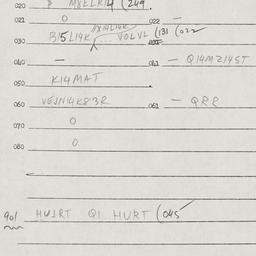 020 MXELR14 (249
021 0 022 —
030 B15L14K VOLVL (131 (022
040 — 041 — Q14MZ14ST
050 K14MAT
060 VEJN14K83R 061 — QRR
070 0
080 0
901 HUJRT Q1 HURT (045